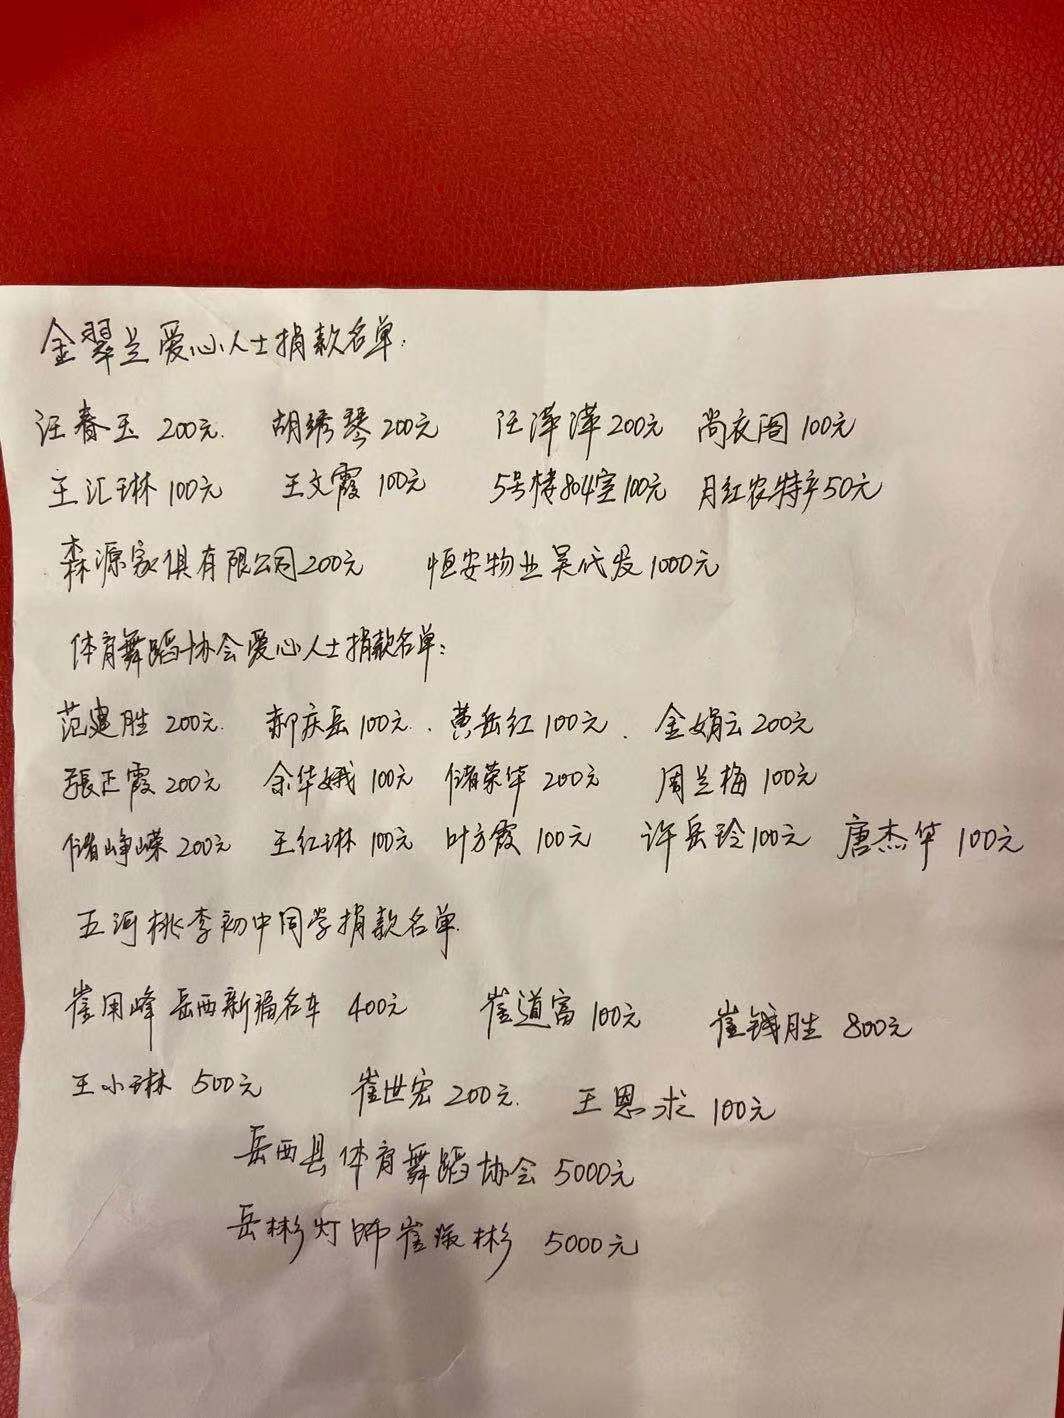 金翠兰爱心人士捐款名单:
汪春玉 200元. 胡绣琴200元 汪萍萍200元 尚衣阁100元
王汇琳100元 王文霞100元 5号楼804室100元 月红农特产50元
森源家俱有限公司200元 恒安物业吴代发1000元
体育舞蹈协会爱心人士捐款名单:
范建胜 200元. 郝庆岳100元. 黄岳红100元. 金娟云200元
張正霞200元 余华娥 100元 储荣华 200元 周兰梅 100元
储峥嵘200元 王红琳 100元 叶方霞 100元 许岳玲100元 唐杰华 100元
五河桃李初中同学捐款名单.
崔用峰 岳西新福名车 400元 崔道富 100元 崔钱胜 800元
王小琳 500元 崔世宏 200元. 王恩求 100元
岳西县体育舞蹈协会 5000元
岳彬灯饰崔振彬 5000元